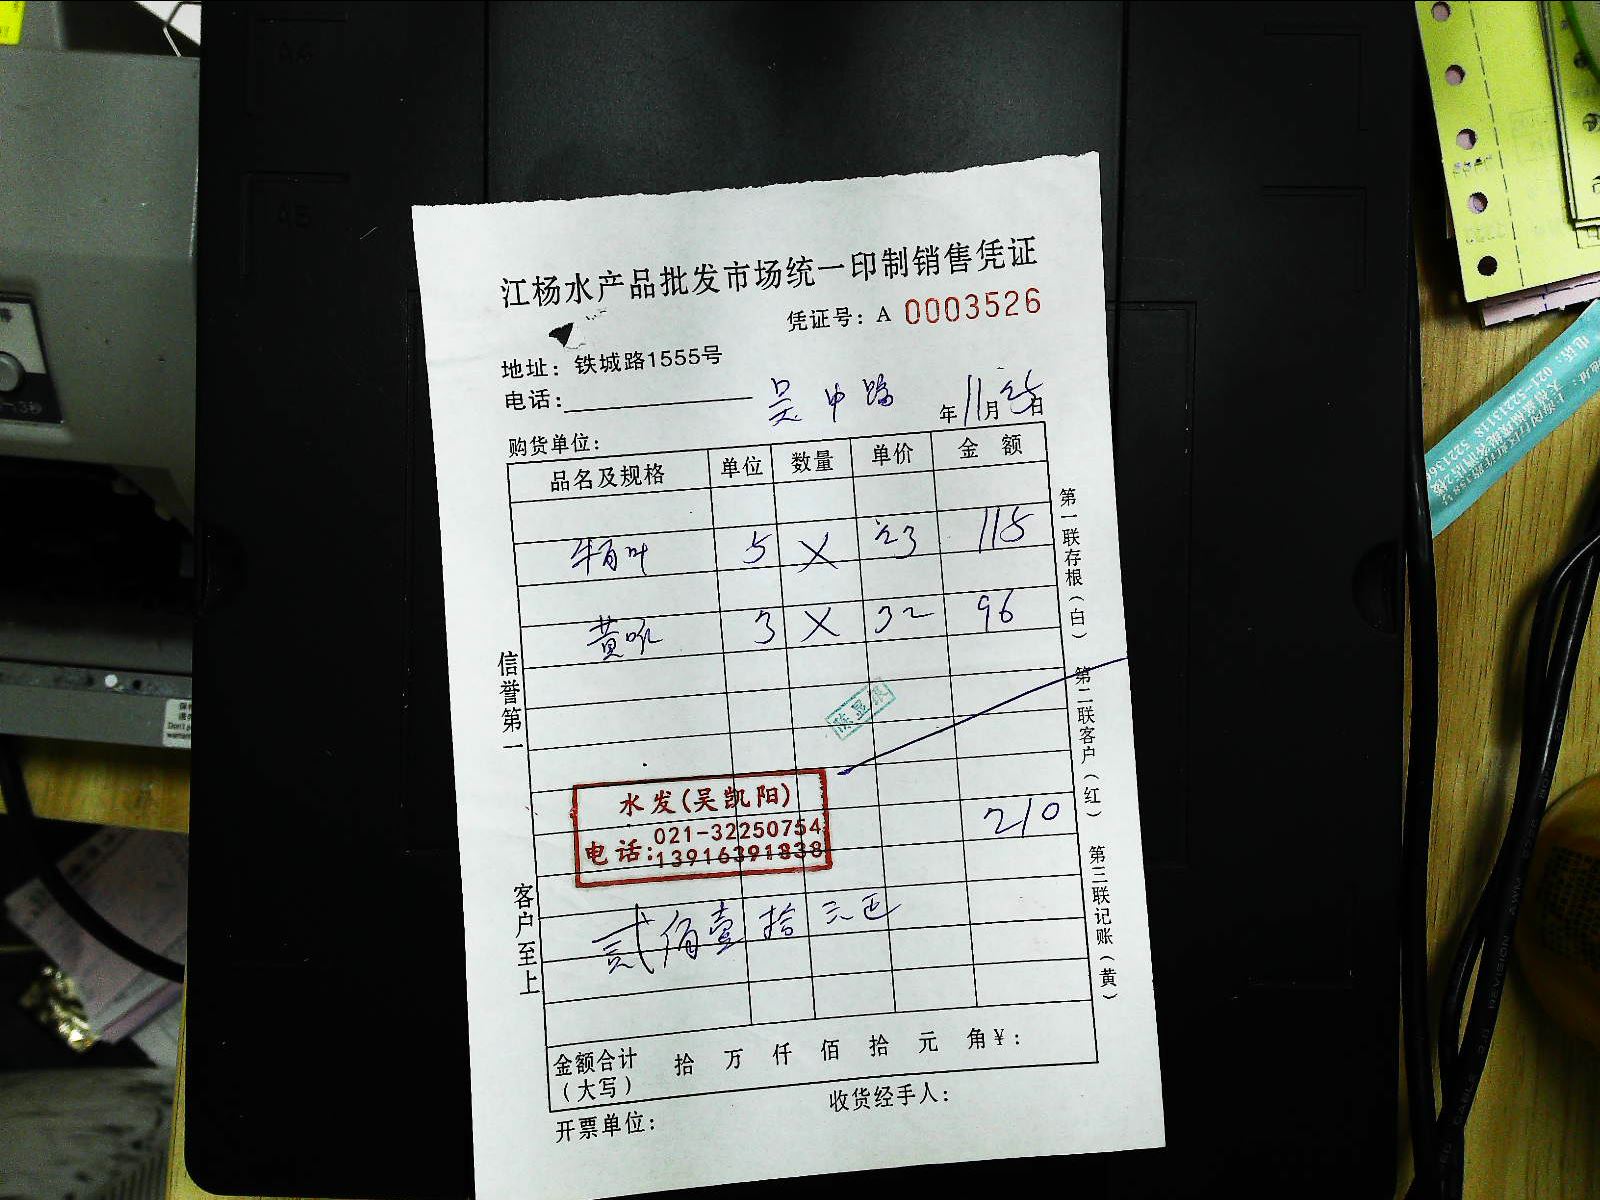 江杨水产品批发市场统一印制销售凭证
凭证号: A 0003526
地址: 铁城路1555号
电话:
吴中路
年11月25日
购货单位:
品名及规格 单位 数量 单价 金 额
牛百叶 5 X 23 115
黄喉 3 X 32 96
陈显
水发(吴凯阳)
电话:021-32250754
13916391838
210
贰佰壹拾元正
金额合计(大写) 拾 万 仟 佰 拾 元 角 ¥:
开票单位:
收货经手人:
信誉第一
客户至上
第一联存根(白)
第二联客户(红)
第三联记账(黄)
A5